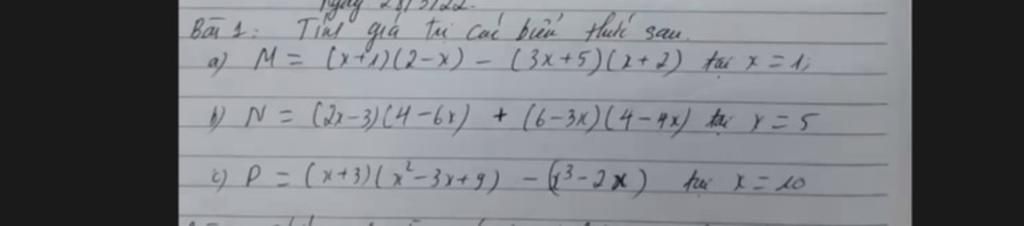 Ngày 28/3/22.
Bài 1: Tính giá trị các biểu thức sau.
a) M = (x+1)(2-x) - (3x+5)(x+2) tại x = 1;
b) N = (2x-3)(4-6x) + (6-3x)(4-4x) tại x = 5
c) P = (x+3)(x²-3x+9) - (x³-2x) tại x = 10